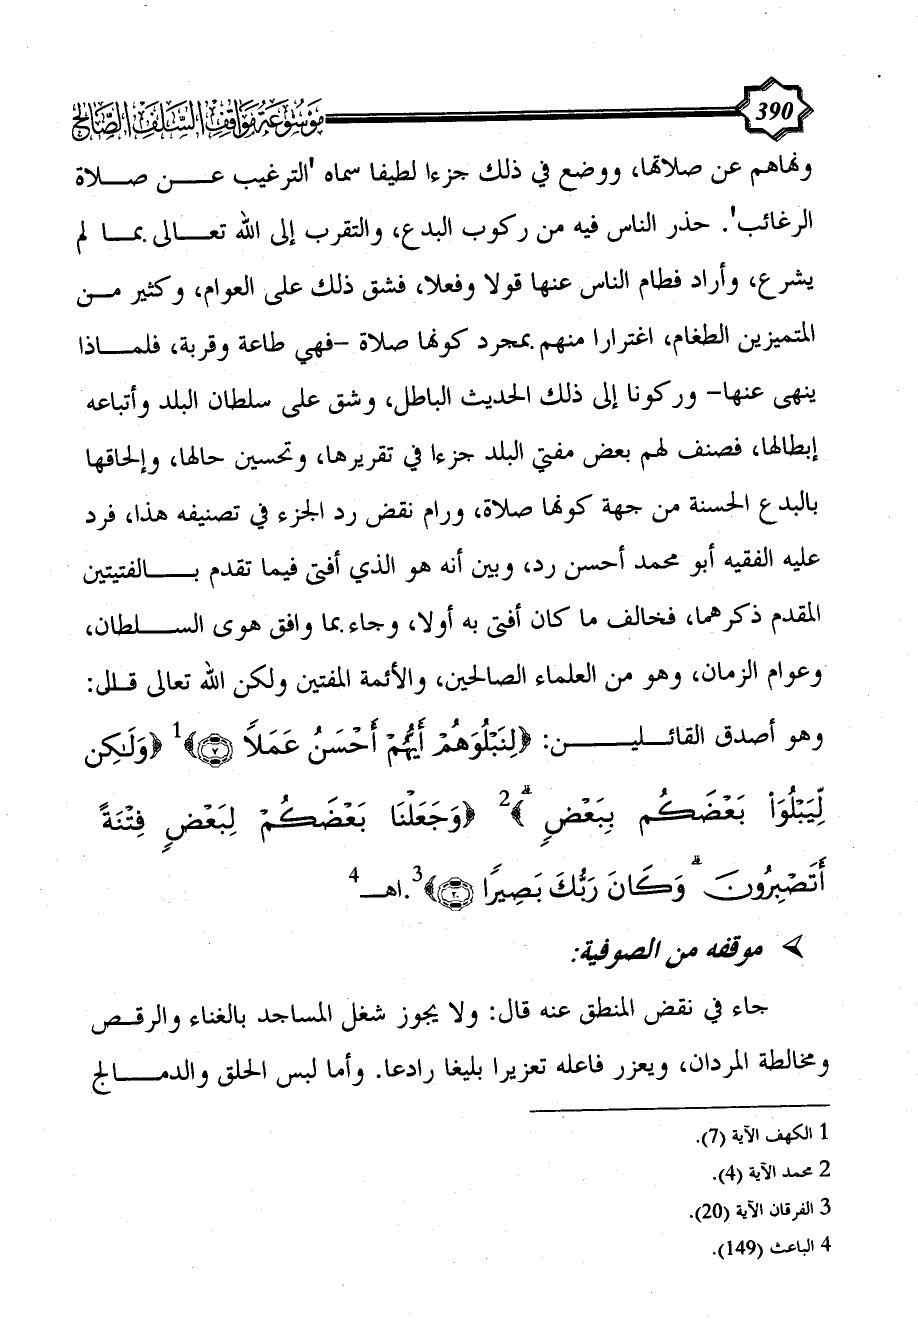 390
موسوعة مواقف السلف الصالح
ونهاهم عن صلاتها، ووضع في ذلك جزءا لطيفا سماه 'الترغيب عـــن صـــلاة
الرغائب'. حذر الناس فيه من ركوب البدع، والتقرب إلى الله تعـــالى بمـــا لم
يشرع، وأراد فطام الناس عنها قولا وفعلا، فشق ذلك على العوام، وكثير مـــن
المتميزين الطغام، اغترارا منهم بمجرد كونها صلاة -فهي طاعة وقربة، فلمـــاذا
ينهى عنها- وركونا إلى ذلك الحديث الباطل، وشق على سلطان البلد وأتباعه
إبطالها، فصنف لهم بعض مفتي البلد جزءا في تقريرها، وتحسين حالها، وإلحاقها
بالبدع الحسنة من جهة كونها صلاة، ورام نقض رد الجزء في تصنيفه هذا، فرد
عليه الفقيه أبو محمد أحسن رد، وبين أنه هو الذي أفتى فيما تقدم بـــالفتيتين
المقدم ذكرهما، فخالف ما كان أفتى به أولا، وجاء بما وافق هوى الســـلطان،
وعوام الزمان، وهو من العلماء الصالحين، والأئمة المفتين ولكن الله تعالى قـــال:
وهو أصدق القائليـــــن: ﴿لِنَبْلُوَهُمْ أَيُّهُمْ أَحْسَنُ عَمَلًا ٧﴾1 ﴿وَلَٰكِن
لِّيَبْلُوَا۟ بَعْضَكُم بِبَعْضٍ ۗ﴾2 ﴿وَجَعَلْنَا بَعْضَكُمْ لِبَعْضٍ فِتْنَةً
أَتَصْبِرُونَ ۗ وَكَانَ رَبُّكَ بَصِيرًا ٢٠﴾3.اهـ 4
➢ موقفه من الصوفية:
جاء في نقض المنطق عنه قال: ولا يجوز شغل المساجد بالغناء والرقـــص
ومخالطة المردان، ويعزر فاعله تعزيرا بليغا رادعا. وأما لبس الحلق والدمـــالج
1 الكهف الآية (7).
2 محمد الآية (4).
3 الفرقان الآية (20).
4 الباعث (149).